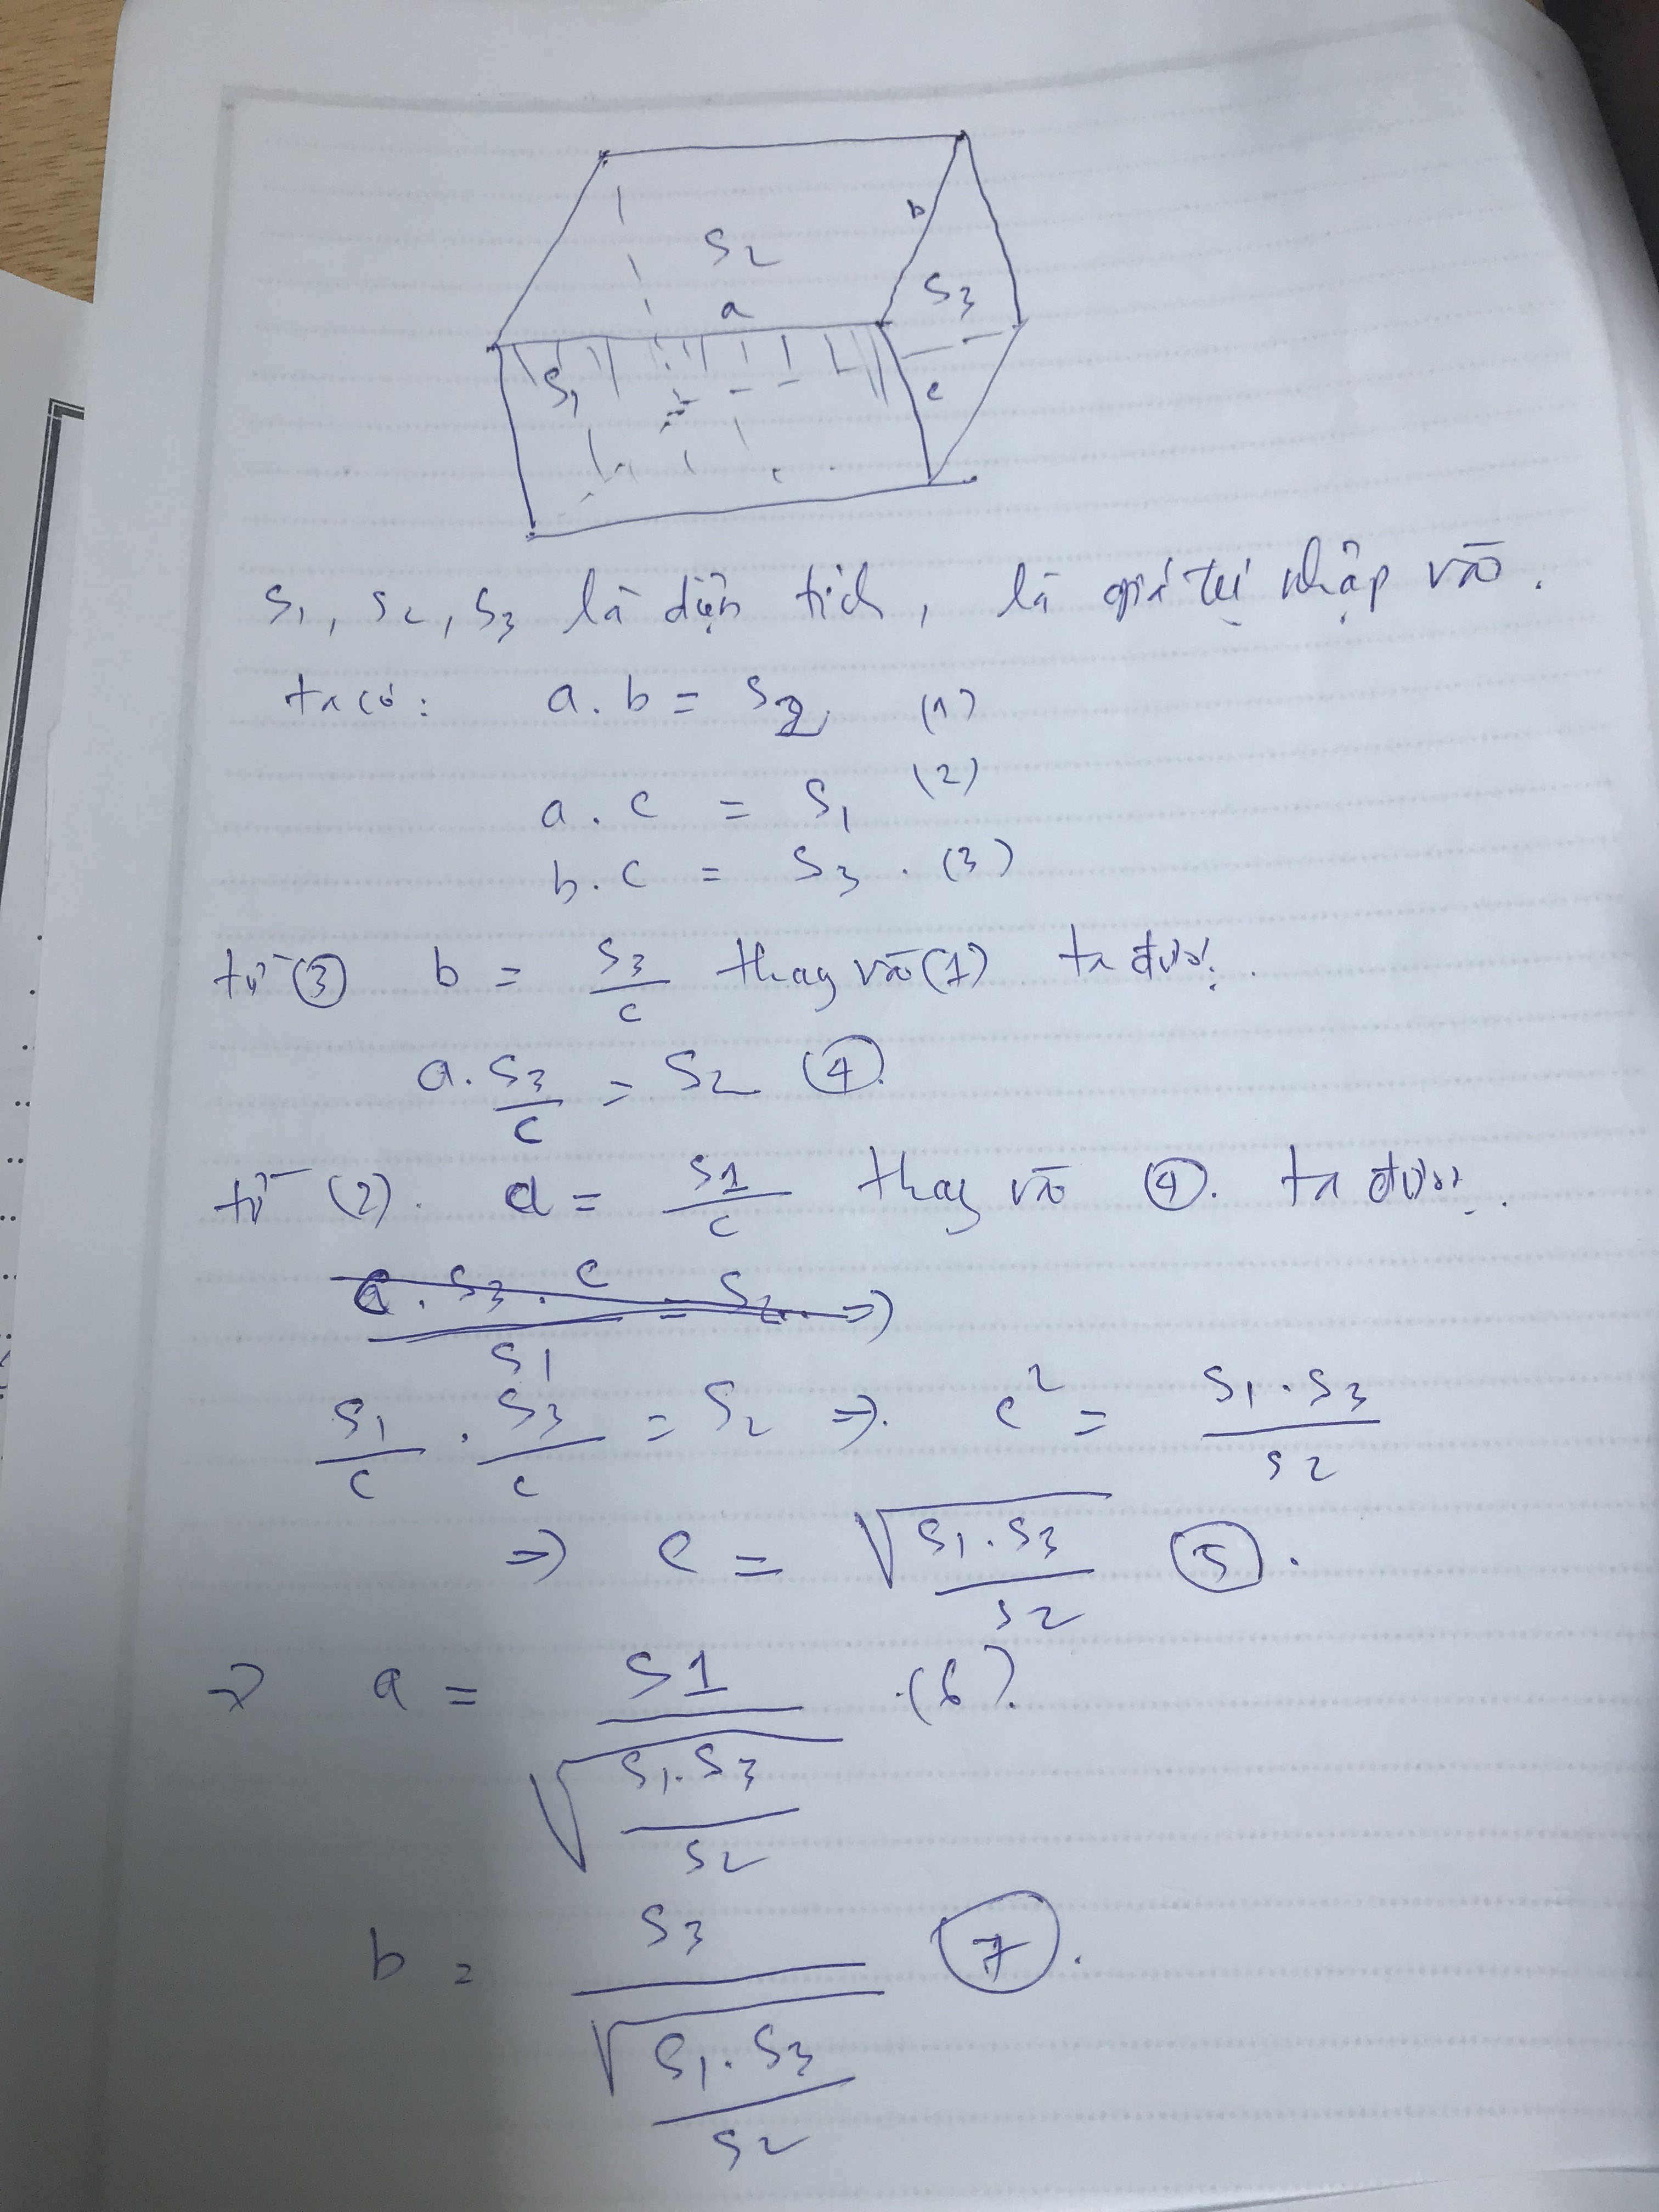 b
S2
a
S3
S1
c
S1, S2, S3 là diện tích, là giá trị nhập vào.
ta có: a.b = S2 (1)
a.c = S1 (2)
b.c = S3. (3)
từ (3) b = S3/c thay vào (1) ta được.
a.S3/c = S2 (4).
từ (2). a = S1/c thay vào (4). ta được.
a.S3.c/S1 = S2. =>
S1/c . S3/c = S2 =>. c² = S1.S3/S2
=> c = √(S1.S3/S2) (5).
=> a = S1/√(S1.S3/S2) .(6).
b = S3/√(S1.S3/S2) (7).